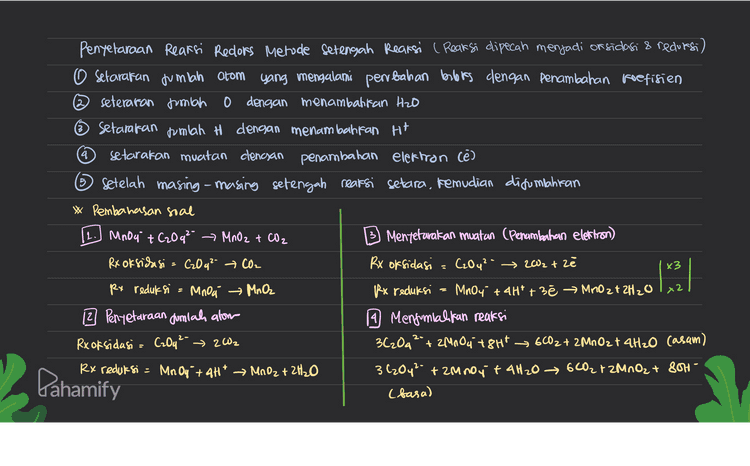 Penyetaraan Reaksi Redoks Metode Setengah Reaksi (Reaksi dipecah menjadi oksidasi & reduksi)
① Setarakan jumlah atom yang mengalami perubahan biloks dengan penambahan koefisien
② setarakan jumlah O dengan menambahkan H₂O
③ Setarakan jumlah H dengan menambahkan H⁺
④ setarakan muatan dengan penambahan elektron (ē)
⑤ Setelah masing-masing setengah reaksi setara, kemudian dijumlahkan
※ Pembahasan soal
1. MnO₄⁻ + C₂O₄²⁻ → MnO₂ + CO₂
Rx oksidasi = C₂O₄²⁻ → CO₂
Rx reduksi = MnO₄⁻ → MnO₂
2 Penyetaraan jumlah atom
Rx oksidasi = C₂O₄²⁻ → 2CO₂
Rx reduksi = MnO₄⁻ + 4H⁺ → MnO₂ + 2H₂O
3 Menyetarakan muatan (Penambahan elektron)
Rx oksidasi = C₂O₄²⁻ → 2CO₂ + 2ē | x3 |
Rx reduksi = MnO₄⁻ + 4H⁺ + 3ē → MnO₂ + 2H₂O | x2 |
4 Menjumlahkan reaksi
3C₂O₄²⁻ + 2MnO₄⁻ + 8H⁺ → 6CO₂ + 2MnO₂ + 4H₂O (asam)
3C₂O₄²⁻ + 2MnO₄⁻ + 4H₂O → 6CO₂ + 2MnO₂ + 8OH⁻
(basa)
Pahamify